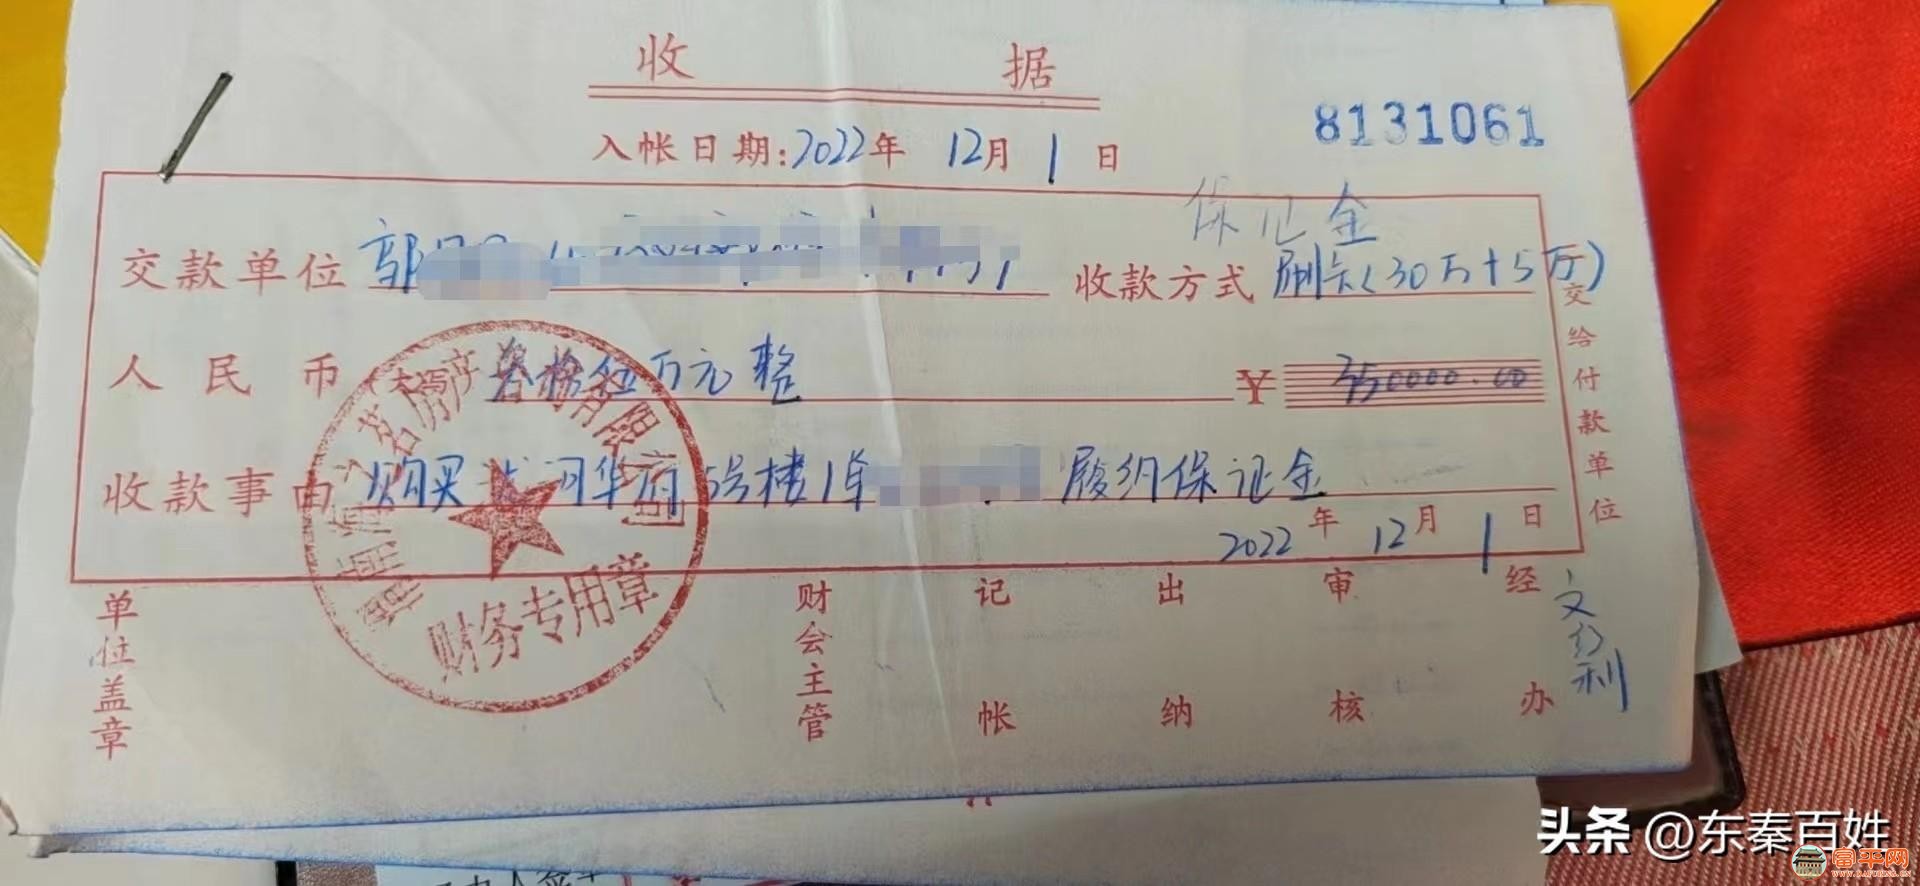 收 据
8131061
入帐日期:2022年 12月 1日
保证金
交款单位 郭 收款方式 刷卡(30万+5万)
人民币 叁拾伍万元整 ¥ 350000.00
收款事由 购买 河华府5号楼1单 履约保证金
2022年 12月 1日
交给付款单位
财务专用章
单位盖章 财会主管 记帐 出纳 审核 经办
头条 @东秦百姓
富平网